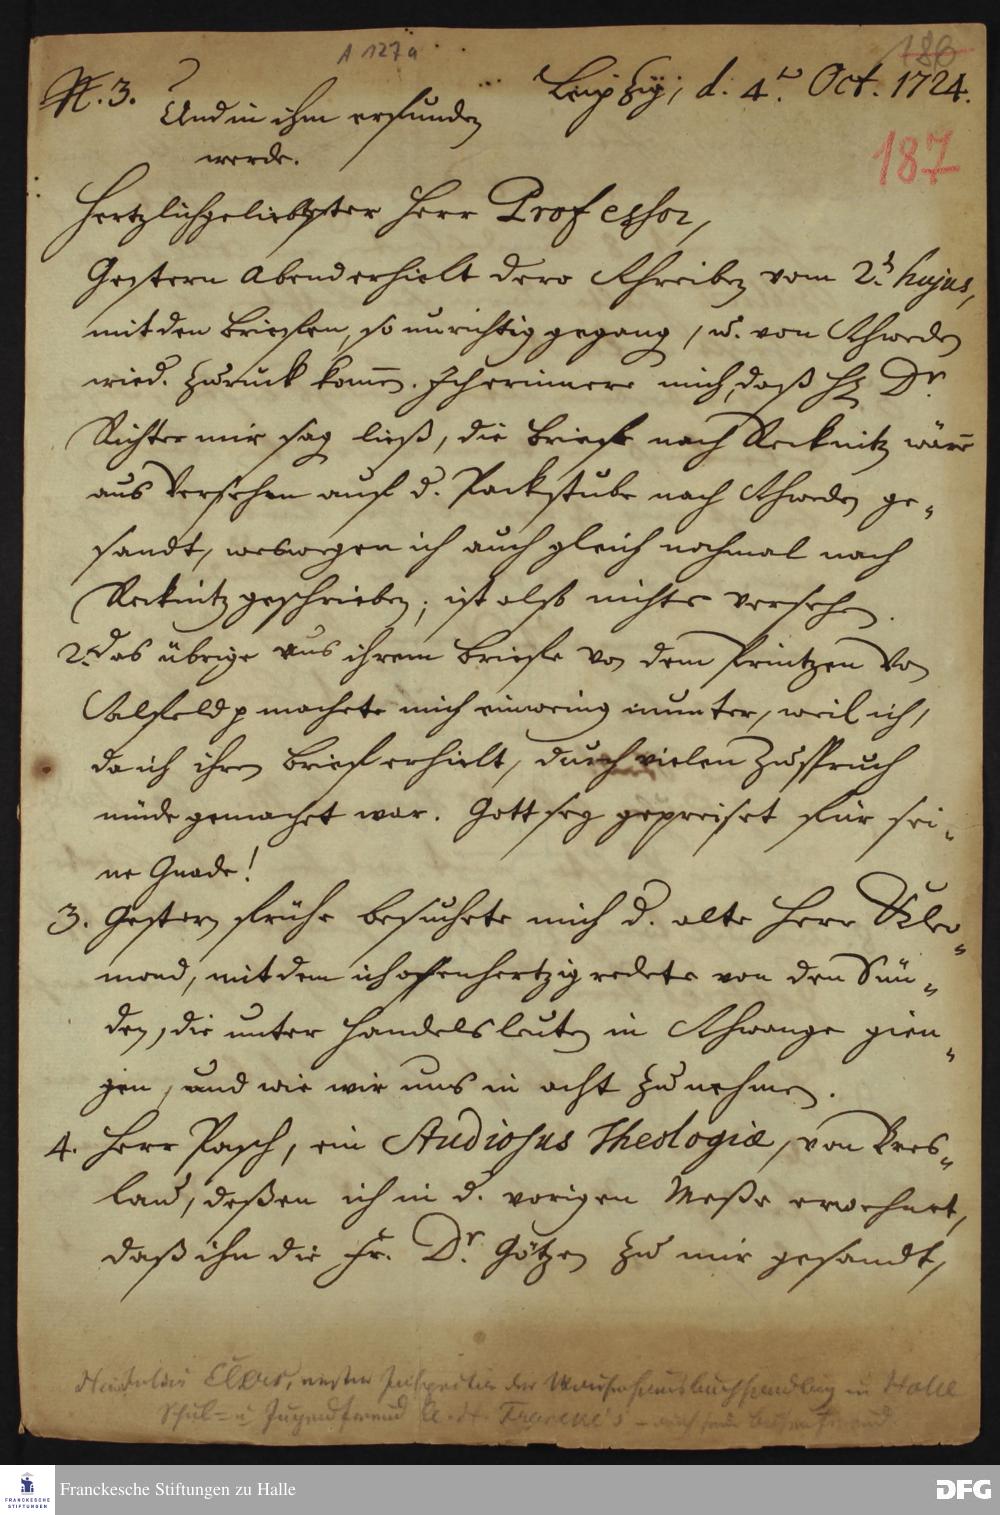 A 127a
180
N. 3.
Leipzig, d. 4.t Oct. 1724.
Und in ihm erfunden
werde.
187
Hertzlichgeliebtester Herr Professor,
Gestern Abend erhielt dero Schreiben vom 2.t hujus,
mit den Briefen, so unrichtig gegang, u. von Schweden
wied. zurück kom̄en. Ich erinnere mich, daß H. Dr.
Richter mir sag ließ, die Briefe nach Recknitz wärē
aus Versehen auf d. Packstube nach Schweden ge-
sandt, weswegen ich auch gleich nochmal nach
Recknitz geschrieben; ist alß nichts versehen.
2. Das übrige aus ihrem Briefe von dem Printzen von
Salfeld p machete mich ein wenig munter, weil ich,
da ich ihren Brief erhielt, durch vielen Zuspruch
müde gemachet war. Gott sey gepreiset für sei-
ne Gnade!
3. Gestern frühe besuchete mich d. alte Herr
mond, mit dem ich offenhertzig redete von den Sün-
den, die unter Handelsleuten in Schwange gien-
gen, und wie wir uns in acht zu nehmen.
4. Herr Pasch, ein Studiosus Theologiæ, von Bres-
lau, deßen ich in d. vorigen Meße erwehnet,
daß ihn die Fr. Dr. Götzen zu mir gesandt,
Elers, erster Inspector der Waisenhausbuchhandlung in Halle
Schul- u Jugendfreund A. H. Francke's -
FRANCKESCHE STIFTUNGEN
Franckesche Stiftungen zu Halle
DFG